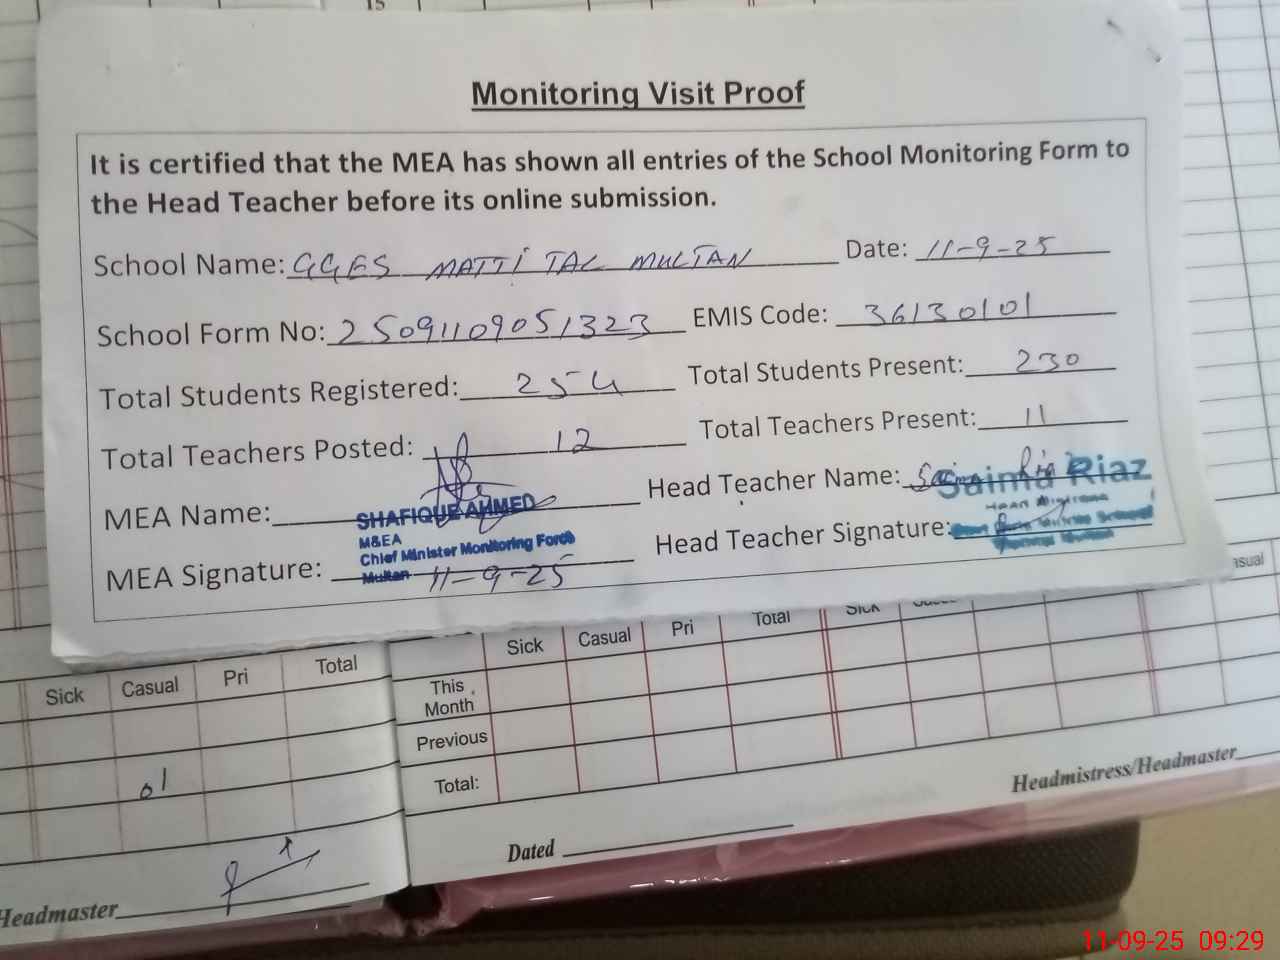 15
Monitoring Visit Proof
It is certified that the MEA has shown all entries of the School Monitoring Form to
the Head Teacher before its online submission.
School Name: GGES MATTI TAL MULTAN Date: 11-9-25
School Form No: 25091109051323 EMIS Code: 36130101
Total Students Registered: 254 Total Students Present: 230
Total Teachers Posted: 12 Total Teachers Present: 11
MEA Name: SHAFIQUE AHMED Head Teacher Name: Saima Riaz
Saima Riaz
M&EA
Chief Minister Monitoring Force
Multan
MEA Signature: 11-9-25 Head Teacher Signature:
Sick Casual Pri Total
01
Headmaster
Sick Casual Pri Total Sick
asual
This Month
Previous
Total:
Dated
Headmistress/Headmaster
11-09-25 09:29